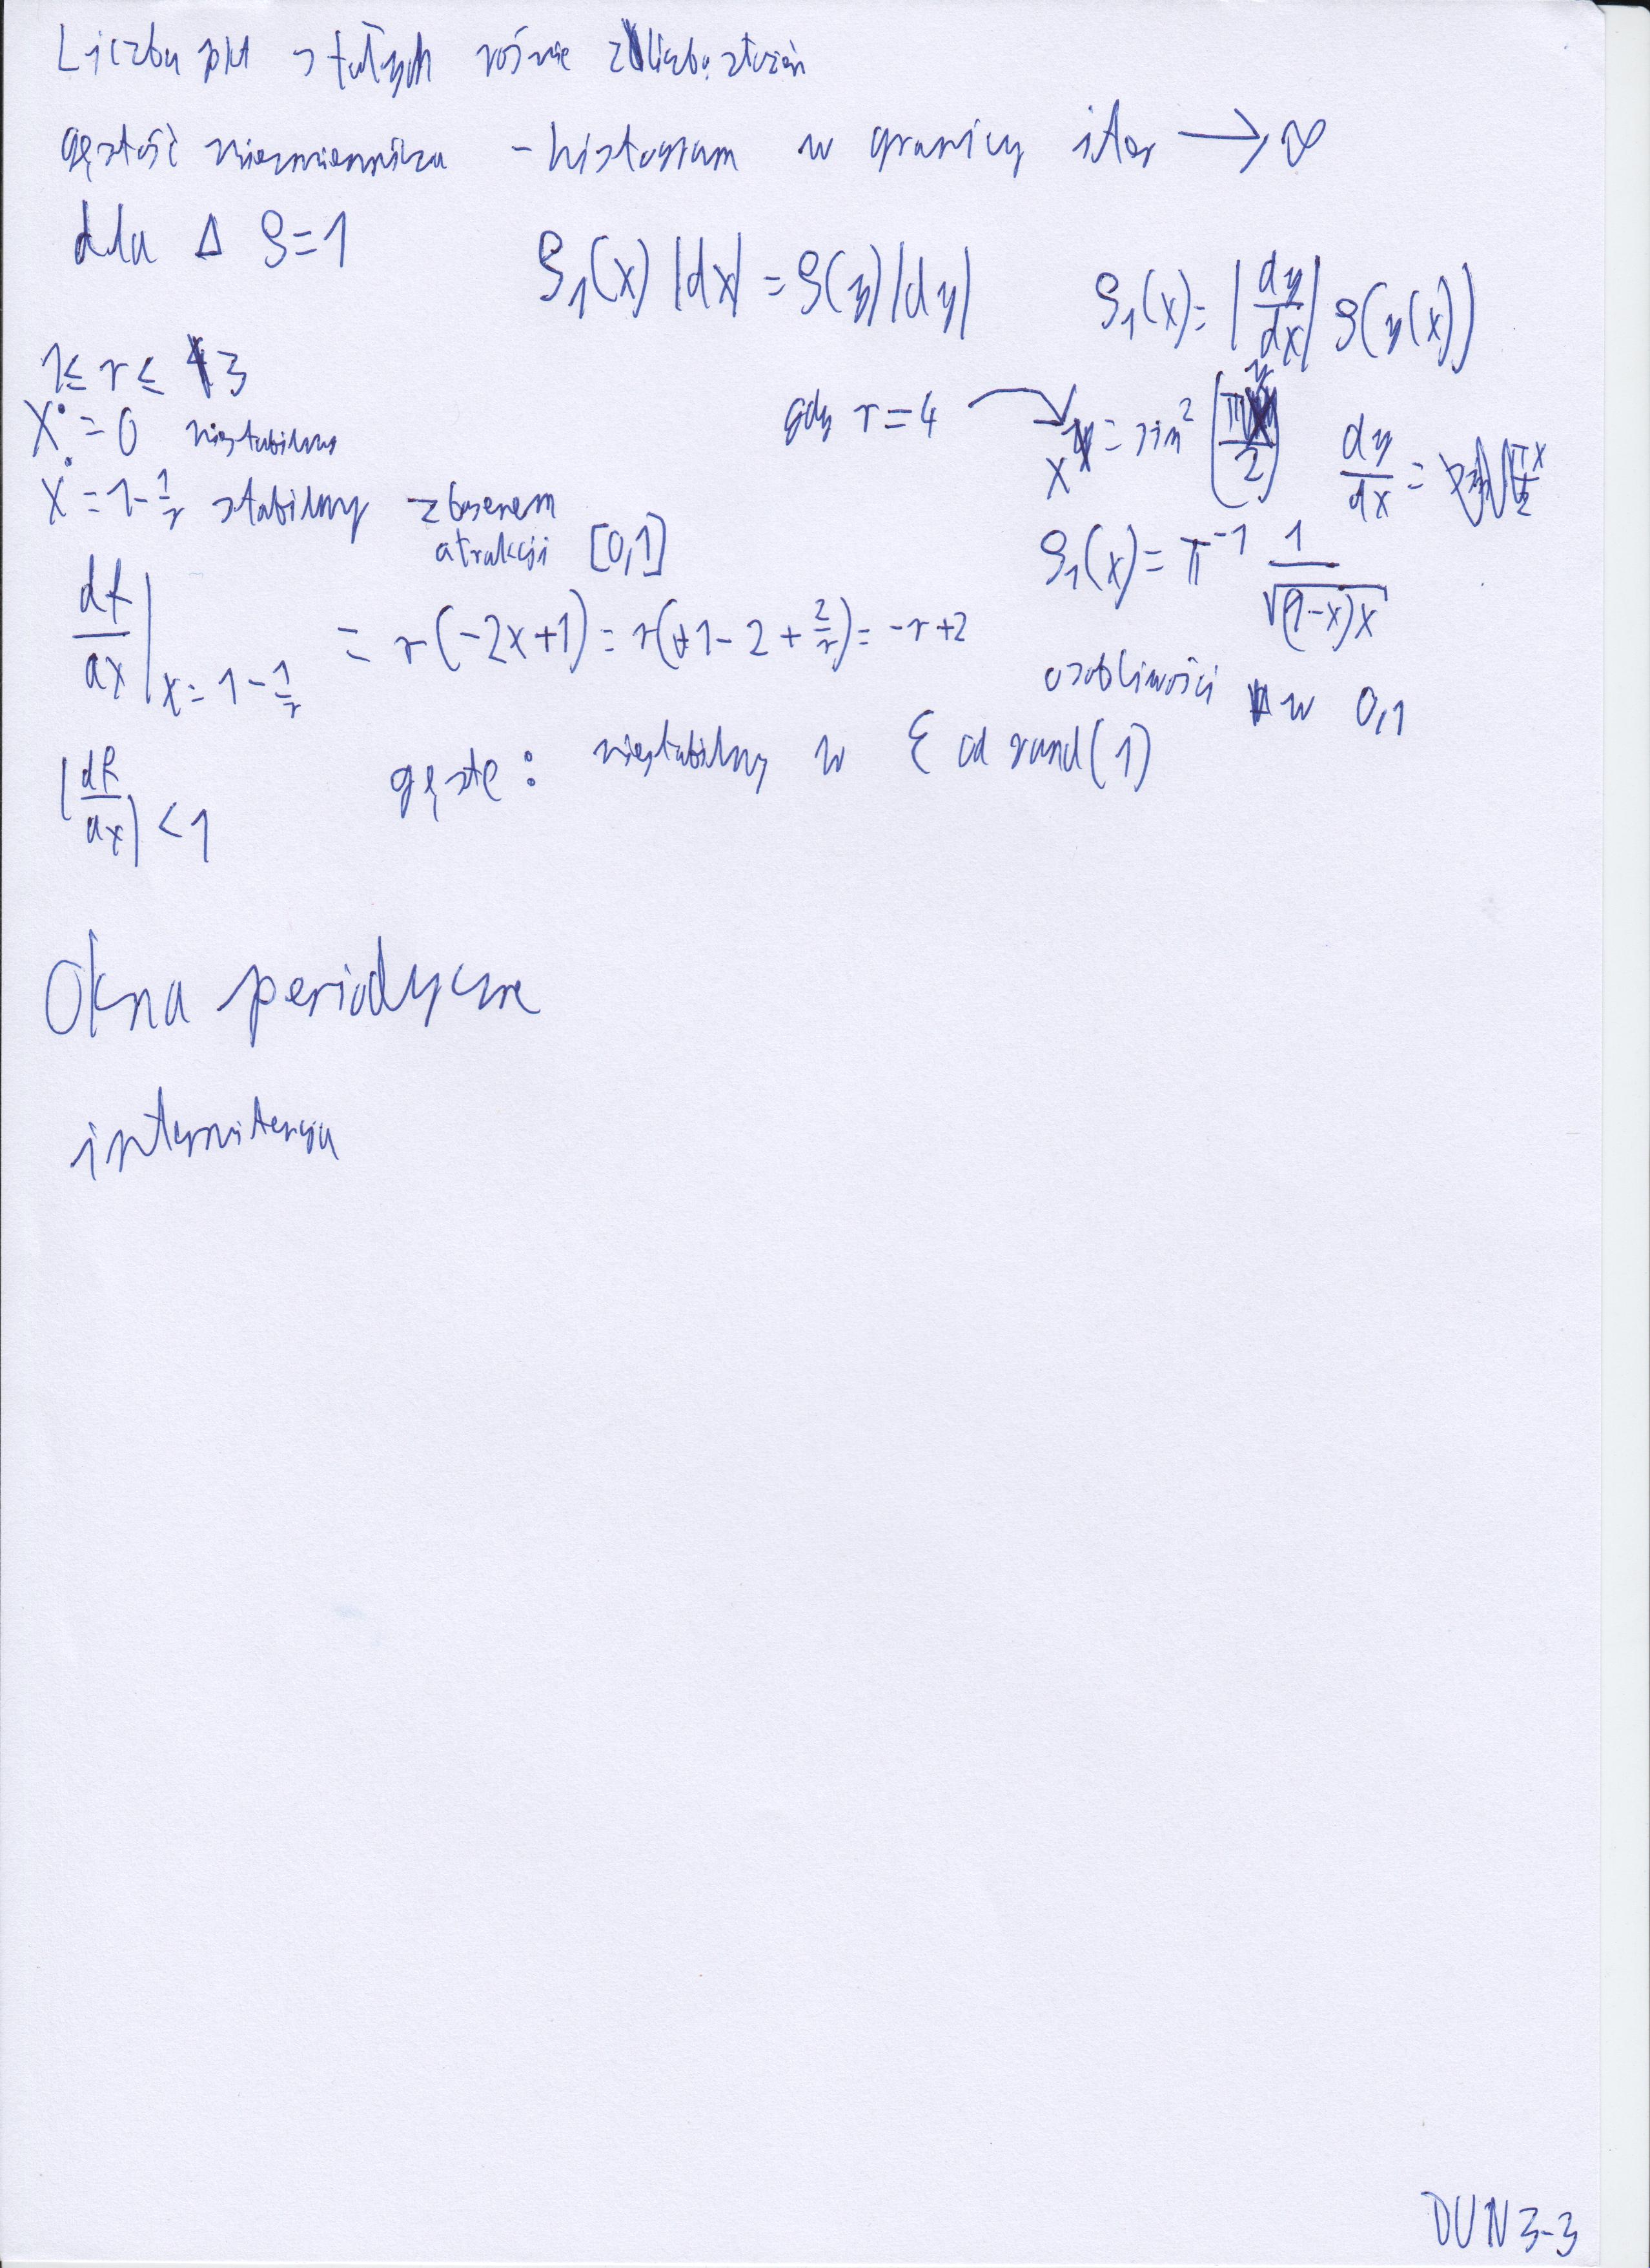 Liczba pkt stałych rośnie z liczbą złożeń
gęstość niezmiennicza - histogram w granicy iter → ∞
dla Δ ρ=1
ρ₁(x) |dx| = ρ(y)|dy|
ρ₁(x) = |dy/dx| ρ(y(x))
1 ≤ r ≤ 3
x* = 0 niestabilny
x* = 1 - 1/r stabilny z basenem
atrakcji [0,1]
gdy r = 4 → x = sin² (πy/2)
dy/dx =
ρ₁(x) = π⁻¹ 1/√((1-x)x)
osobliwości w 0,1
df/dx |x = 1 - 1/r = r(-2x+1) = r(+1-2+2/r) = -r+2
|df/dx| < 1
gęste: niestabilny w ε od rand(1)
Okna periodyczne
intermitencja
DUN 3-3